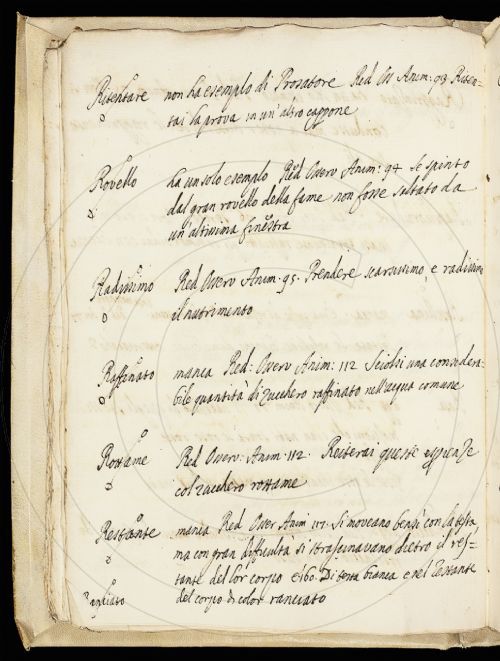 Ritentare non ha esempio di Prosatore Red Os Anim: 93 Riten-
tai la prova in un' altro cappone
Rovello ha un solo esempio Red Osserv Anim: 94 se spinto
dal gran rovello della fame non fosse saltato da
un'altissima finestra
Radissimo Red Osserv Anim. 95. Prendere scarsissimo, e radissimo
il nutrimento
Raffinato manca Red: Osserv Anim: 112 Sciolsi una considera-
bile quantità di zucchero raffinato nell'acqua comune
Rottame Red Osserv: Anim. 112. Reiterai queste
col zucchero rottame
Restante manca Red Osser Anim Si moveano bensì con la testa
ma con gran difficulta si strascinavano dietro il res-
tante del lor corpo e 160. Di testa bianca e nel restante
Ranciato del corpo di color ranciato